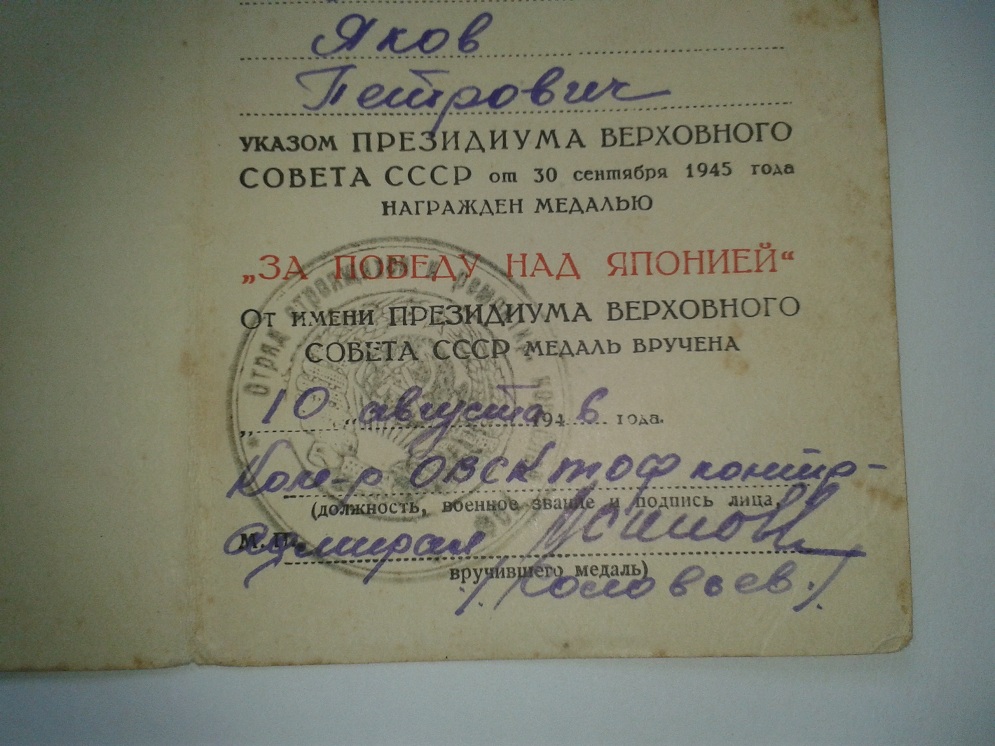 Яков
Петрович
УКАЗОМ ПРЕЗИДИУМА ВЕРХОВНОГО
СОВЕТА СССР от 30 сентября 1945 года
НАГРАЖДЕН МЕДАЛЬЮ
„ЗА ПОБЕДУ НАД ЯПОНИЕЙ“
От имени ПРЕЗИДИУМА ВЕРХОВНОГО
СОВЕТА СССР МЕДАЛЬ ВРУЧЕНА
„10 августа 1946 года.
Ком-р ОВСК ТОФ контр-
(должность, военное звание и подпись лица,
М.П. адмирал
вручившего медаль)
Отряд строящихся и ремонтир.